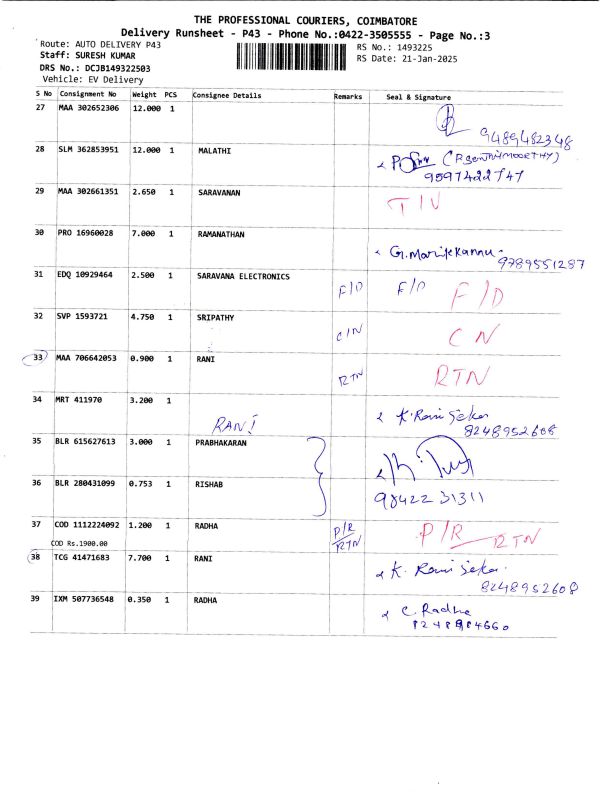 THE PROFESSIONAL COURIERS, COIMBATORE
Delivery Runsheet - P43 - Phone No.:0422-3505555 - Page No.:3
Route: AUTO DELIVERY P43
Staff: SURESH KUMAR
DRS No.: DCJB149322503
Vehicle: EV Delivery
RS No.: 1493225
RS Date: 21-Jan-2025
S No Consignment No Weight PCS Consignee Details Remarks Seal & Signature
27 MAA 302652306 12.000 1
9489482348
28 SLM 362853951 12.000 1 MALATHI
(P.SENTHILMOORTHY)
9597422747
29 MAA 302661351 2.650 1 SARAVANAN T/N
30 PRO 16960028 7.000 1 RAMANATHAN
G. Marikkannu
9789551287
31 EDQ 10929464 2.500 1 SARAVANA ELECTRONICS F/D F/D F/D
32 SVP 1593721 4.750 1 SRIPATHY C/N CN
33 MAA 706642053 0.900 1 RANI RTN RTN
34 MRT 411970 3.200 1 RANI K. Rani Sekar
8248952608
35 BLR 615627613 3.000 1 PRABHAKARAN
36 BLR 280431099 0.753 1 RISHAB
98422 31311
37 COD 1112224092 1.200 1 RADHA P/R RTN P/R RTN
COD Rs.1900.00
38 TCG 41471683 7.700 1 RANI K. Rani Sekar
8248952608
39 IXM 507736548 0.350 1 RADHA C. Radha